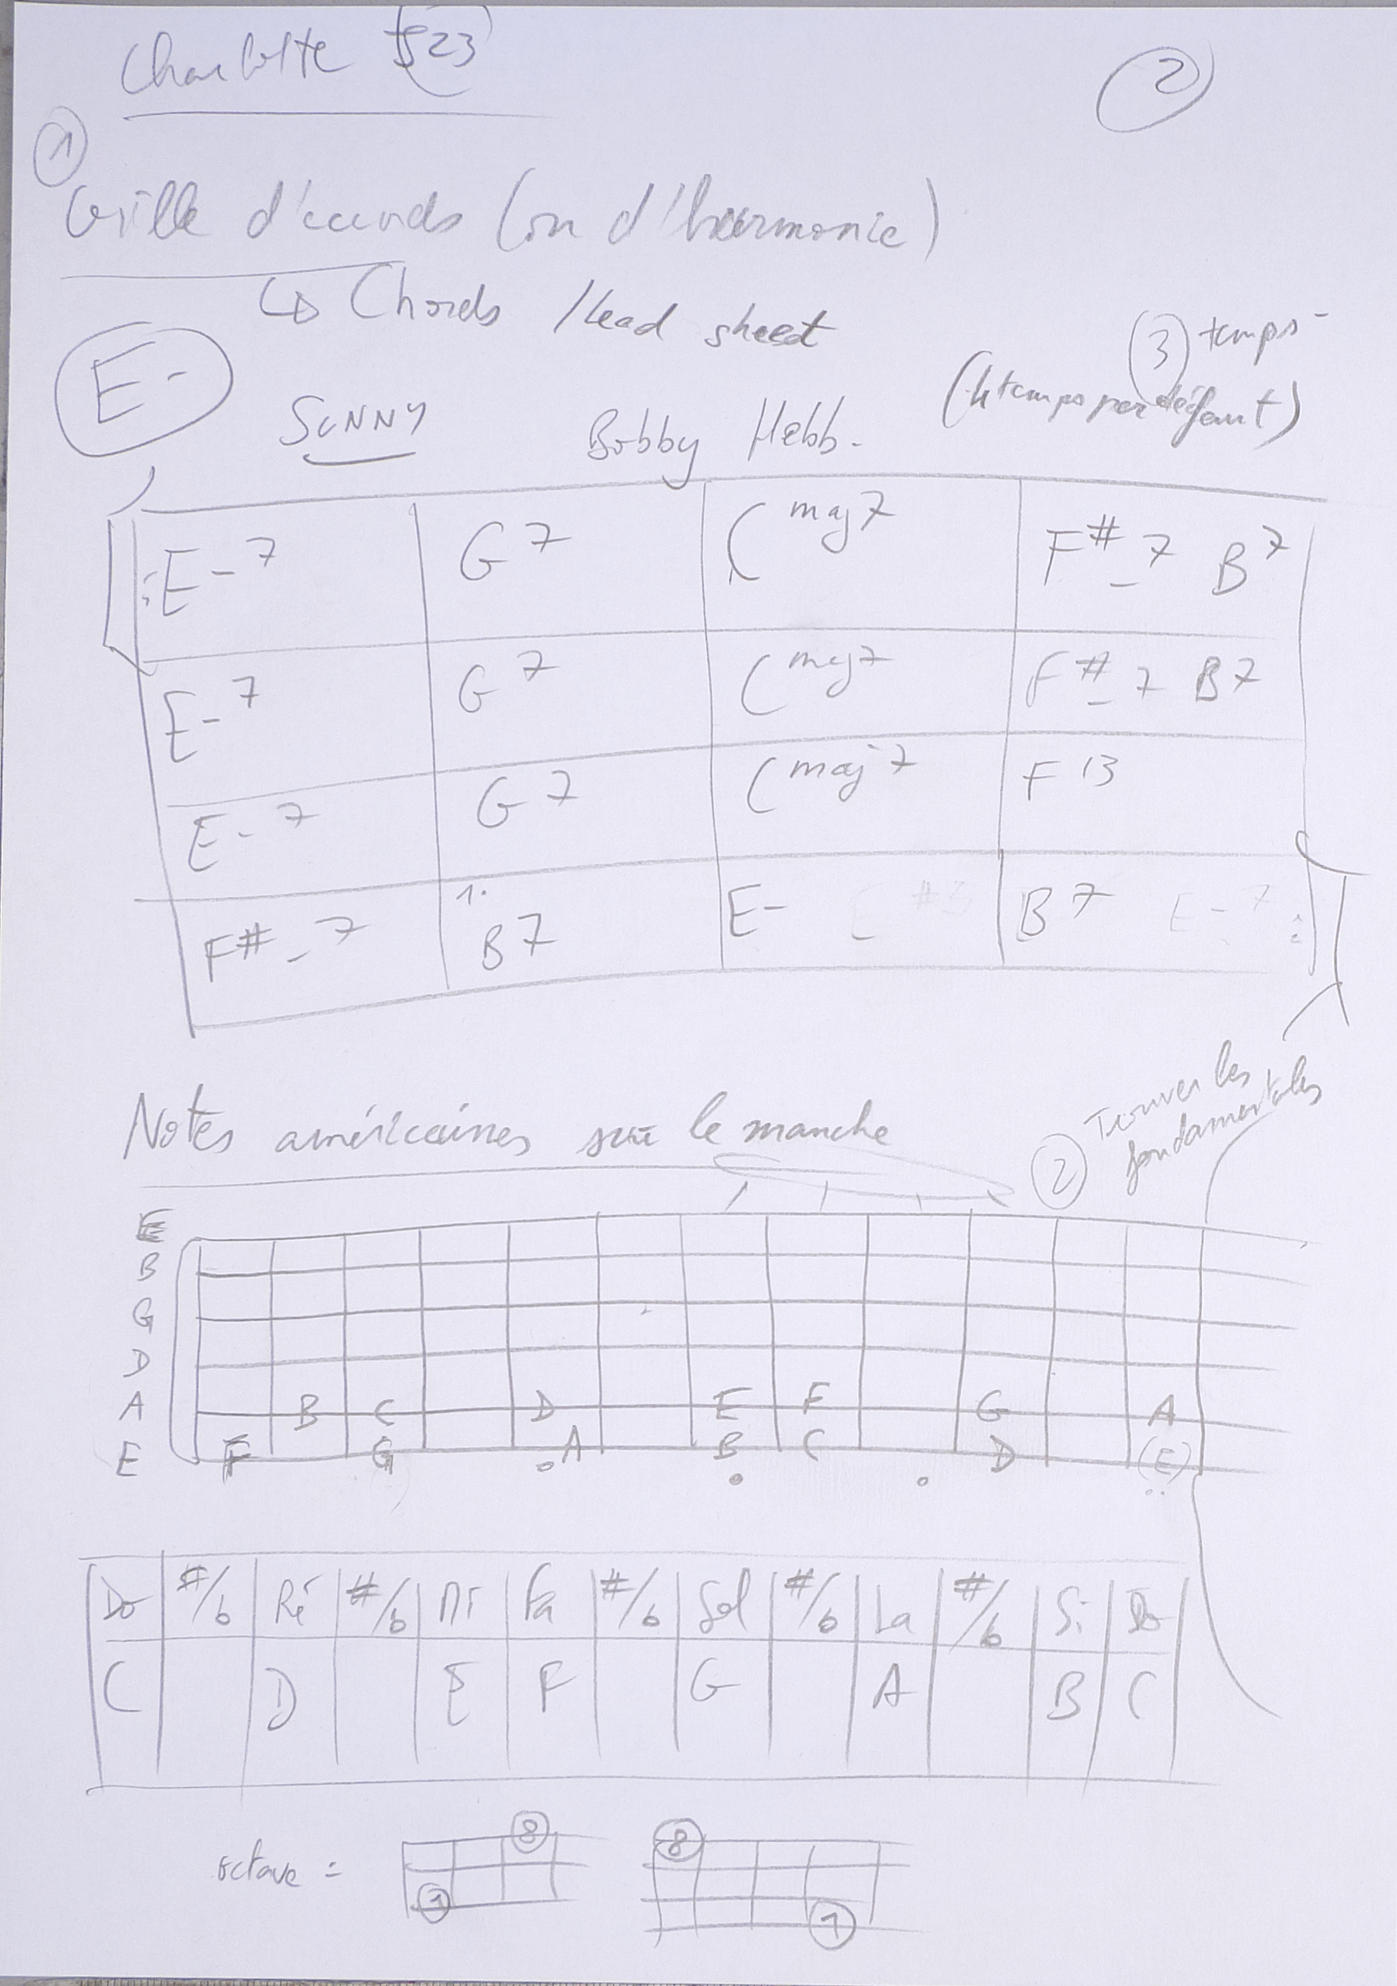 Charlotte 523
2
1
Grille d'accords (ou d'harmonie)
Chords / lead sheet
3 temps
(4 temps par défaut)
E-
SUNNY Bobby Hebb.
E-7 G7 Cmaj7 F#-7 B7
E-7 G7 Cmaj7 F#-7 B7
E-7 G7 Cmaj7 F13
F#-7 1. B7 E- B7 E-7
Notes américaines sur le manche
2 Trouver les
fondamentales
E
B
G
D
A B C D E F G A
E F G A B C D (E)
Do #/b Ré #/b Mi Fa #/b Sol #/b La #/b Si Do
C D E F G A B C
octave = 8 8
1 1